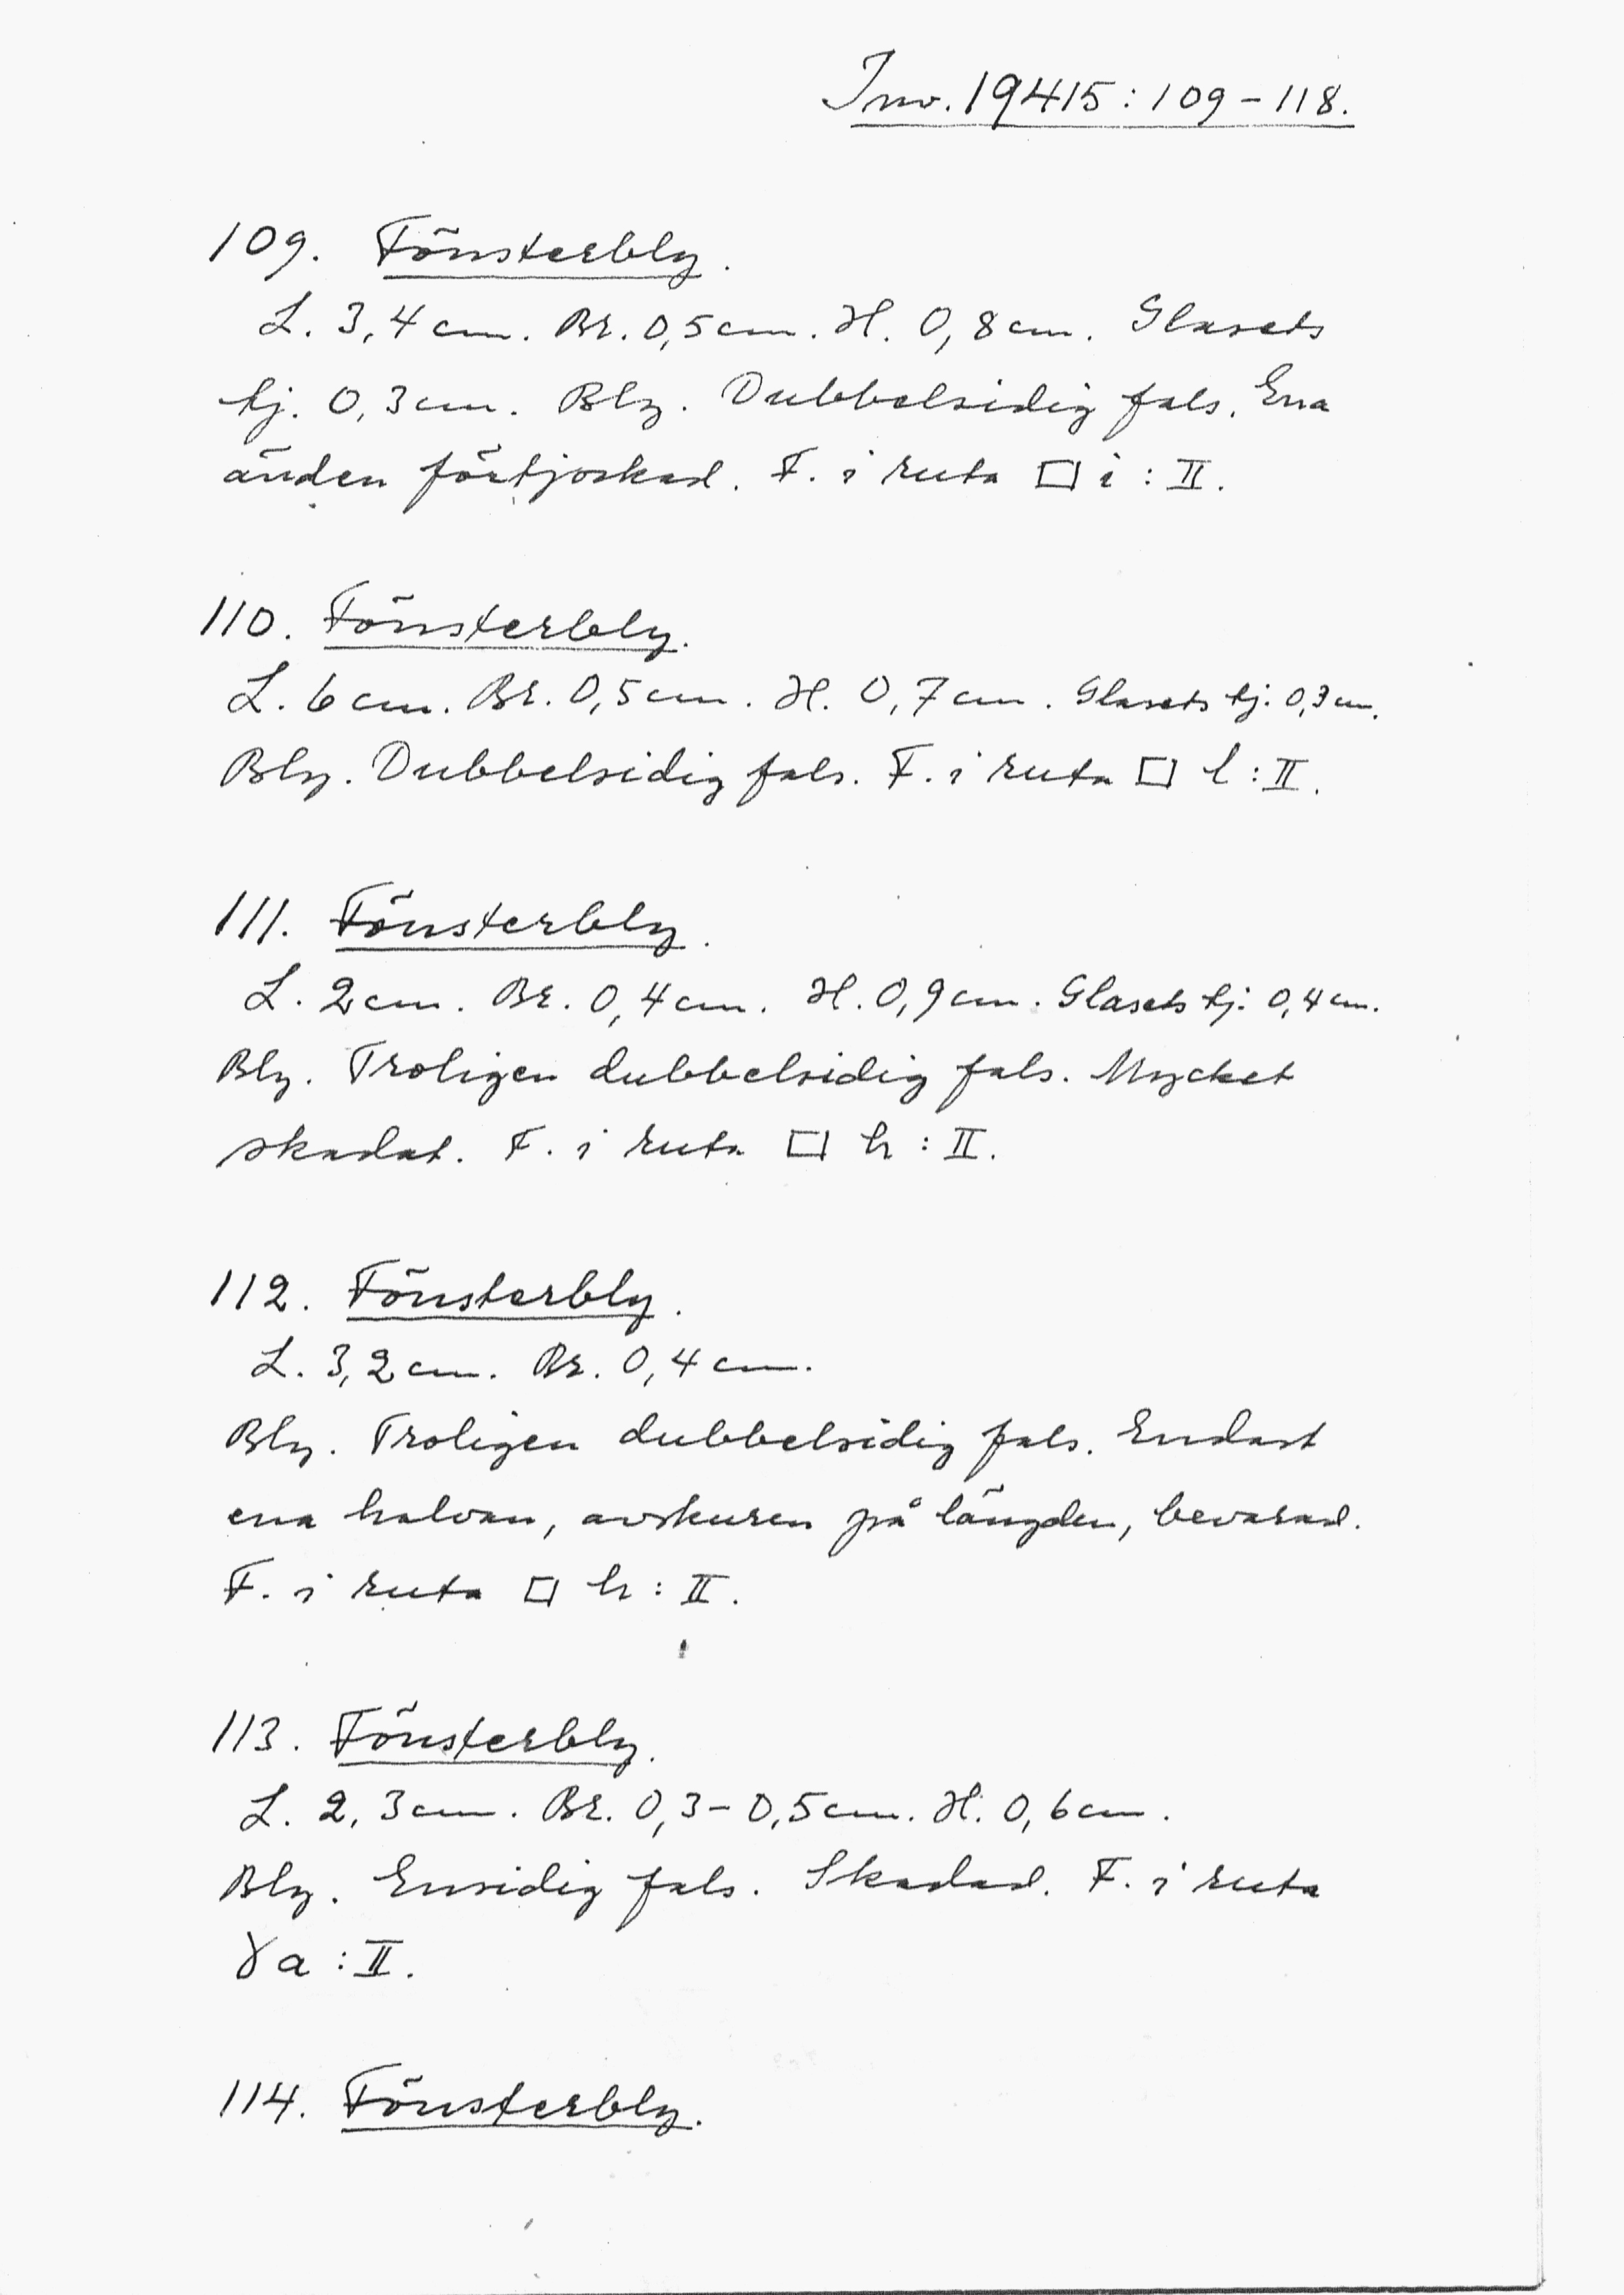 Inv. 19415:109-118.
109. Fönsterbly.
L. 3,4 cm. Br. 0,5 cm. H. 0,8 cm. Glasets
tj. 0,3 cm. Bly. Dubbelsidig fals. Ena
änden förtjockad. F. i ruta □ i : II.
110. Fönsterbly.
L. 6 cm. Br. 0,5 cm. H. 0,7 cm. Glasets tj. 0,3 cm.
Bly. Dubbelsidig fals. F. i ruta □ l : II.
111. Fönsterbly.
L. 2 cm. Br. 0,4 cm. H. 0,9 cm. Glasets tj. 0,4 cm.
Bly. Troligen dubbelsidig fals. Mycket
skadat. F. i ruta □ h : II.
112. Fönsterbly.
L. 3,2 cm. Br. 0,4 cm.
Bly. Troligen dubbelsidig fals. Endast
ena halvan, avskuren på längden, bevarad.
F. i ruta □ h : II.
113. Fönsterbly.
L. 2,3 cm. Br. 0,3-0,5 cm. H. 0,6 cm.
Bly. Ensidig fals. Skadad. F. i ruta
γ a : II.
114. Fönsterbly.